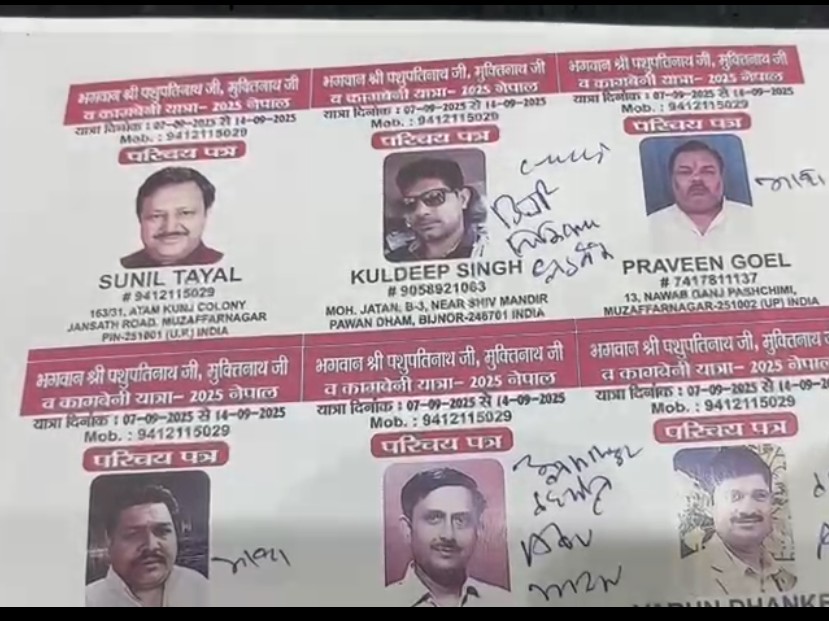 भगवान श्री पशुपतिनाथ जी, मुक्तिनाथ जी
व कागबेनी यात्रा- 2025 नेपाल
यात्रा दिनांक : 07-09-2025 से 14-09-2025
Mob. : 9412115029
परिचय पत्र
SUNIL TAYAL
# 9412115029
163/31, ATAM KUNJ COLONY
JANSATH ROAD, MUZAFFARNAGAR
PIN-251001 (U.P.) INDIA
भगवान श्री पशुपतिनाथ जी, मुक्तिनाथ जी
व कागबेनी यात्रा- 2025 नेपाल
यात्रा दिनांक : 07-09-2025 से 14-09-2025
Mob. : 9412115029
परिचय पत्र
KULDEEP SINGH
# 9058921063
MOH. JATAN, B-3, NEAR SHIV MANDIR
PAWAN DHAM, BIJNOR-246701 INDIA
भगवान श्री पशुपतिनाथ जी, मुक्तिनाथ जी
व कागबेनी यात्रा- 2025 नेपाल
यात्रा दिनांक : 07-09-2025 से 14-09-2025
Mob. : 9412115029
परिचय पत्र
PRAVEEN GOEL
# 7417811137
13, NAWAB GANJ PASHCHIMI,
MUZAFFARNAGAR-251002 (UP) INDIA
भगवान श्री पशुपतिनाथ जी, मुक्तिनाथ जी
व कागबेनी यात्रा- 2025 नेपाल
यात्रा दिनांक : 07-09-2025 से 14-09-2025
Mob. : 9412115029
परिचय पत्र
भगवान श्री पशुपतिनाथ जी, मुक्तिनाथ जी
व कागबेनी यात्रा- 2025 नेपाल
यात्रा दिनांक : 07-09-2025 से 14-09-2025
Mob. : 9412115029
परिचय पत्र
भगवान श्री पशुपतिनाथ जी, मुक्तिनाथ
व कागबेनी यात्रा- 2025 नेपाल
यात्रा दिनांक : 07-09-2025 से 14-09-20
Mob. : 9412115029
परिचय पत्र
VARUN DHANKE